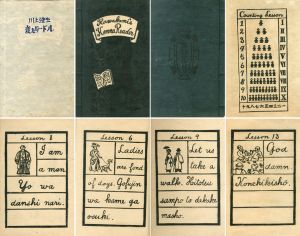 川上澄生
Kawakami's
Henna Reader
Counting Lesson
1 I
2 II
3 III
4 IV
5 V
6 VI
7 VII
8 VIII
9 IX
10 X
十九八七六五四三二一
Lesson 2
I am
a man
Yo wa
danshi nari.
Lesson 6
Ladies
are fond
of dogs. Gofujin
wa kame ga
osuki.
Lesson 9
Let us
take a
walk. Hitotsu
sampo to dekake
masho.
Lesson 13
God
damn.
Konchikisho.